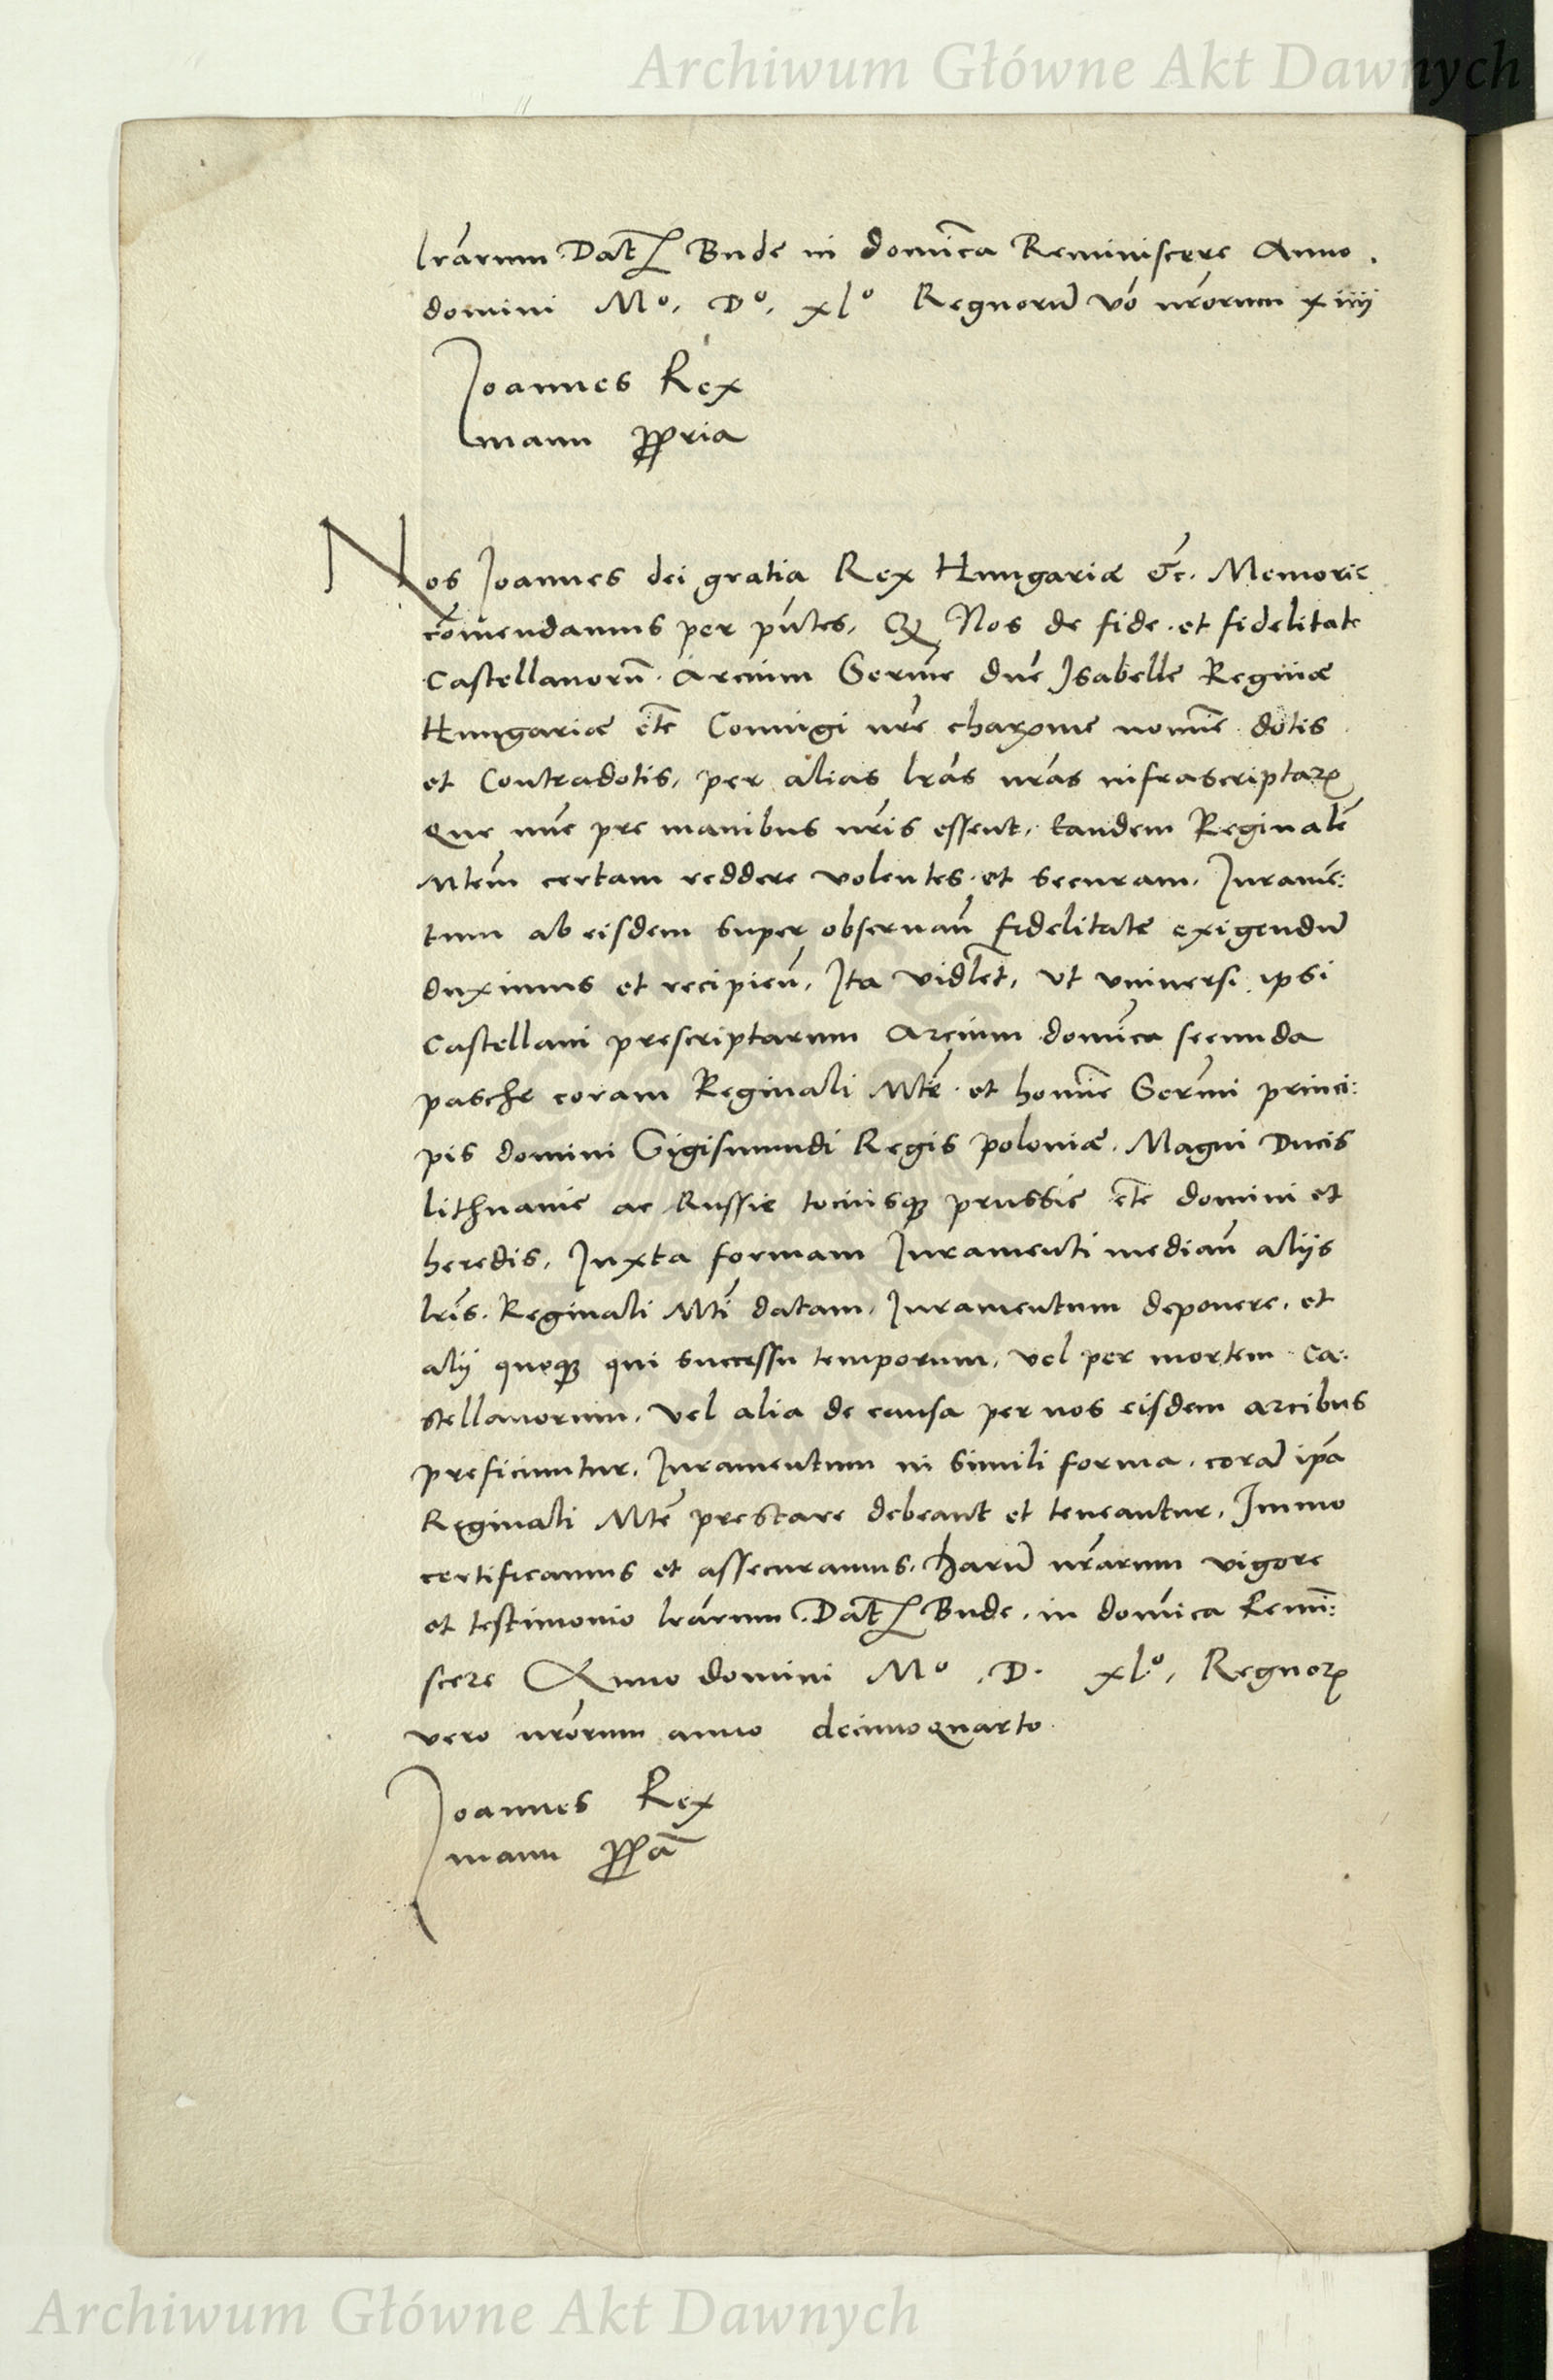 Archiwum Główne Akt Dawnych
lrarum Dat Bude in dominica Reminiscere Anno.
domini Mo. Do. xlo Regnorum vo nrorum xiiij
Joannes Rex
manu ppria
Nos Joannes dei gratia Rex Hungariæ &c. Memorie
comendamus per pntes, Q Nos de fide et fidelitate
Castellanorum Arcium Serme dne Isabelle Reginæ
Hungariæ etc Coniugi nre charme nomine dotis
et Contradotis, per alias lras nras infrascriptarum
que nunc pre manibus nris essent, tandem Reginalem
Mtem certam reddere volentes et securam, Juramen:
tum ab eisdem super obseruan fidelitate exigendum
duximus et recipien, Ita videlet, ut vniuersi ipsi
Castellani prescriptarum Arcium dominica secunda
pasche coram Reginali Mte et homine Sermi princi:
pis domini Sigismundi Regis poloniæ, Magni Ducis
lithuanie ac Russie tociusque prussie etc domini et
heredis, Juxta formam Juramenti median alijs
lris Reginali Mti datam, Juramentum deponere, et
alij quoque qui successu temporum, vel per mortem Ca:
stellanorum, vel alia de causa per nos eisdem arcibus
preficiuntur, Juramentum in simili forma, coram ipa
Reginali Mte prestare debeant et teneantur, Immo
certificamus et assecuramus, harum nrarum vigore
et testimonio lrarum, Dat Bude, in dominica Remi:
scere Anno domini Mo .D. xl.o, Regnorum
vero nrorum anno decimoquarto
Joannes Rex
manu ppa
Archiwum Główne Akt Dawnych